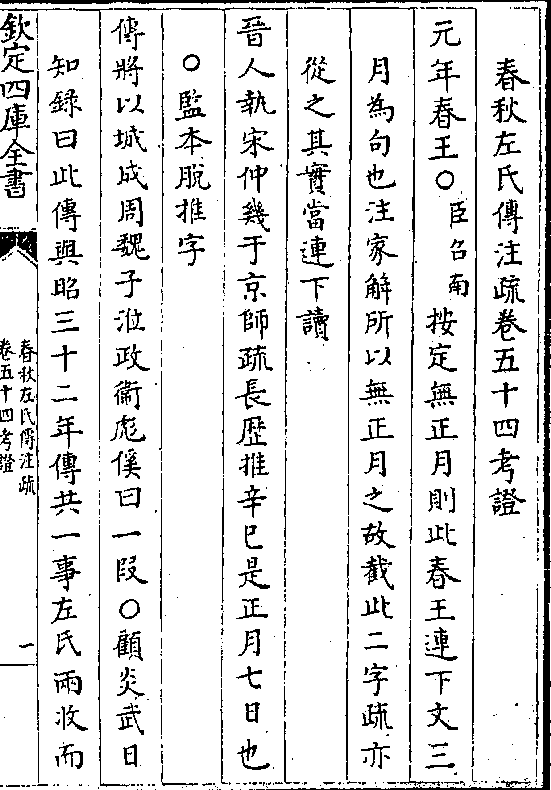 春秋左氏傳注疏卷五十四考證
元年春王○臣召南按定無正月則此春王連下文三
月為句也注家解所以無正月之故截此二字疏亦
從之其實當連下讀
晉人執宋仲幾于京師疏長歷推辛巳是正月七日也
○監本脫推字
傳將以城成周魏子涖政衞彪傒曰一段○顧炎武日
知録曰此傳與昭三十二年傳共一事左氏兩收而
欽定四庫全書
春秋左氏傳注疏
卷五十四考證
一